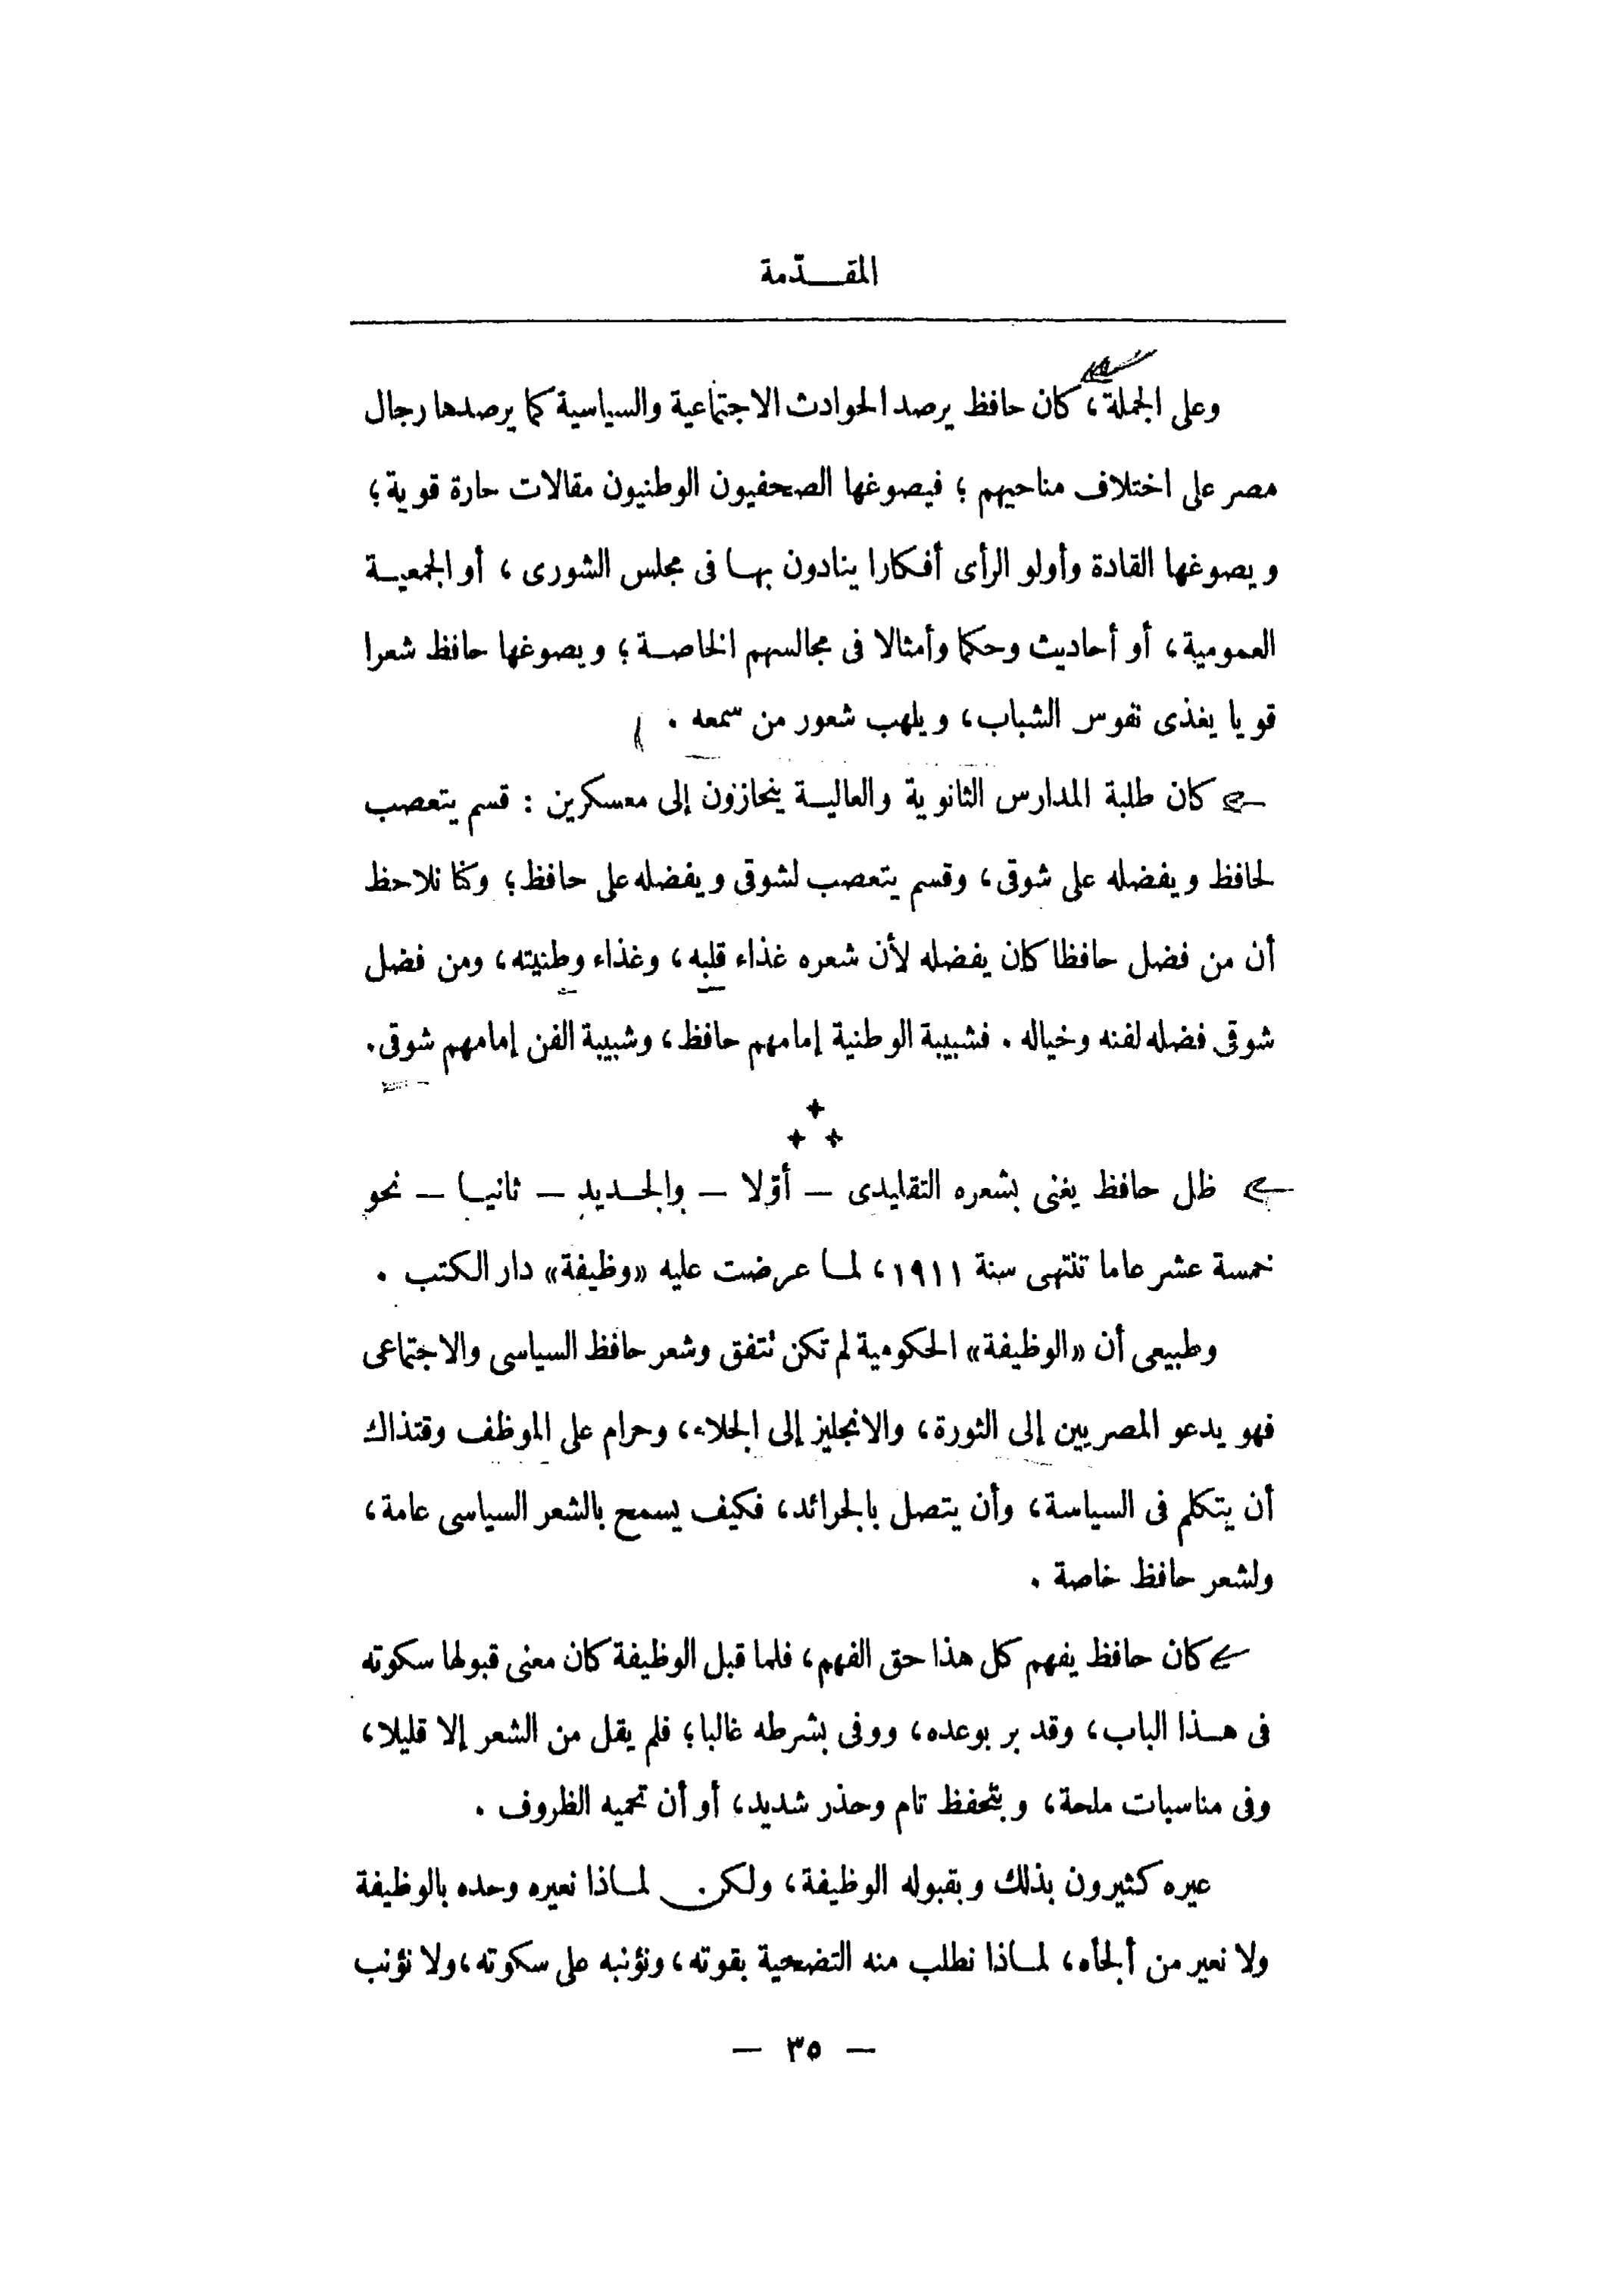 المقدّمة
وعلى الجملة، كان حافظ يرصد الحوادث الاجتماعية والسياسية كما يرصدها رجال
مصر على اختلاف مناحيهم ؛ فيصوغها الصحفيون الوطنيون مقالات حارة قوية ؛
ويصوغها القادة وأولو الرأى أفكارا ينادون بها فى مجلس الشورى ، أو الجمعية
العمومية، أو أحاديث وحكما وأمثالا فى مجالسهم الخاصة ؛ ويصوغها حافظ شعرا
قويا يغذى نفوس الشباب، ويلهب شعور من سمعه .
كان طلبة المدارس الثانوية والعالية ينحازون إلى معسكرين : قسم يتعصب
لحافظ ويفضله على شوقى، وقسم يتعصب لشوقى ويفضله على حافظ ؛ وكنا نلاحظ
أن من فضل حافظا كان يفضله لأن شعره غذاء قلبه، وغذاء وطنيته، ومن فضل
شوقى فضله لفنه وخياله . فشبيبة الوطنية إمامهم حافظ، وشبيبة الفن إمامهم شوقى.
ظل حافظ يغنى بشعره التقليدى – أوّلا – والجديد – ثانيا – نحو
خمسة عشر عاما تنتهى سنة ١٩١١، لما عرضت عليه «وظيفة» دار الكتب .
وطبيعى أن «الوظيفة» الحكومية لم تكن تتفق وشعر حافظ السياسى والاجتماعى
فهو يدعو المصريين إلى الثورة، والانجليز إلى الجلاء، وحرام على الموظف وقتذاك
أن يتكلم فى السياسة، وأن يتصل بالجرائد، فكيف يسمح بالشعر السياسى عامة،
ولشعر حافظ خاصة .
كان حافظ يفهم كل هذا حق الفهم، فلما قبل الوظيفة كان معنى قبولها سكوته
فى هذا الباب، وقد بر بوعده، ووفى بشرطه غالبا؛ فلم يقل من الشعر إلا قليلا،
وفى مناسبات ملحة، وبتحفظ تام وحذر شديد، أو أن تحميه الظروف .
عيره كثيرون بذلك وبقبوله الوظيفة، ولكن لماذا نعيره وحده بالوظيفة
ولا نعير من ألجأه، لماذا نطلب منه التضحية بقوته، ونؤنبه على سكوته، ولا نؤنب
— ٣٥ —